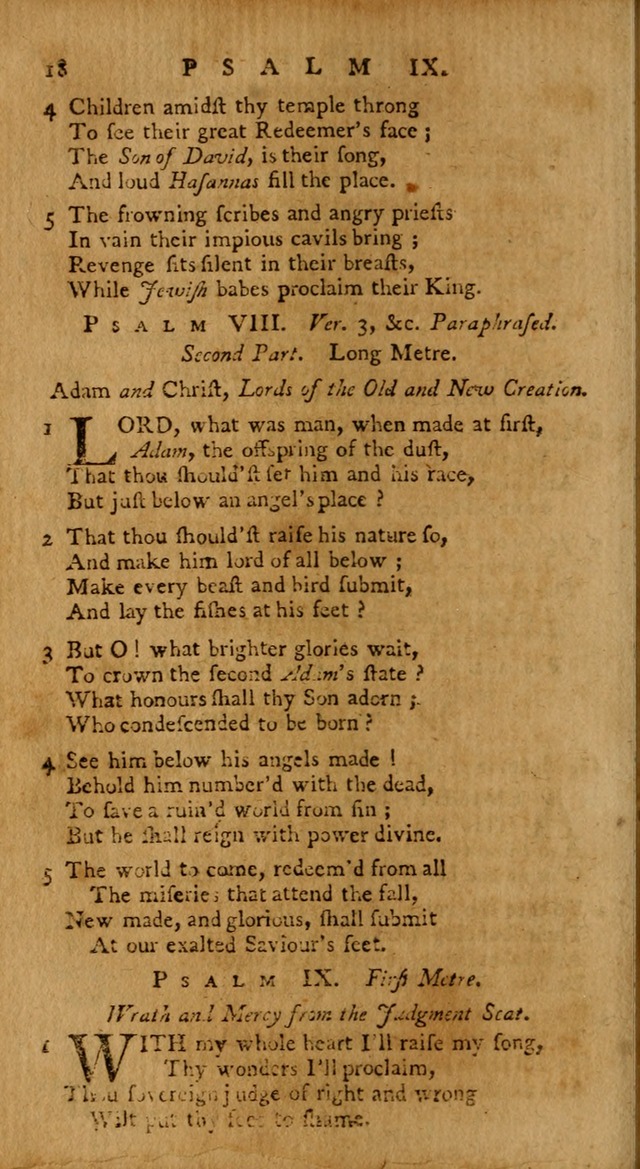 18 PSALM IX.
4 Children amidſt thy temple throng
To ſee their great Redeemer's face ;
The Son of David, is their ſong,
And loud Haſannas fill the place.
5 The frowning ſcribes and angry prieſts
In vain their impious cavils bring ;
Revenge ſits ſilent in their breaſts,
While Jewiſh babes proclaim their King.
PSALM VIII. Ver. 3, &c. Paraphraſed.
Second Part. Long Metre.
Adam and Chriſt, Lords of the Old and New Creation.
1 LORD, what was man, when made at firſt,
Adam, the offspring of the duſt,
That thou ſhould'ſt ſet him and his race,
But juſt below an angel's place ?
2 That thou ſhould'ſt raiſe his nature ſo,
And make him lord of all below ;
Make every beaſt and bird ſubmit,
And lay the fiſhes at his feet ?
3 But O ! what brighter glories wait,
To crown the ſecond Adam's ſtate ?
What honours ſhall thy Son adorn ;
Who condeſcended to be born ?
4 See him below his angels made !
Behold him number'd with the dead,
To ſave a ruin'd world from ſin ;
But he ſhall reign with power divine.
5 The world to come, redeem'd from all
The miſeries that attend the fall,
New made, and glorious, ſhall ſubmit
At our exalted Saviour's feet.
PSALM IX. Firſt Metre.
Wrath and Mercy from the Judgment Seat.
1 WITH my whole heart I'll raiſe my ſong,
Thy wonders I'll proclaim,
Thou ſovereign judge of right and wrong
Wilt put thy foes to ſhame.